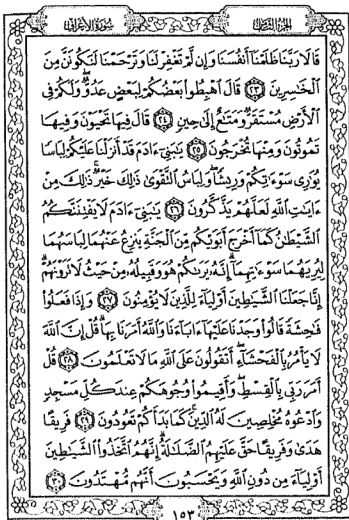 الجزء الثامن
سورة الأعراف
قَالَا رَبَّنَا ظَلَمْنَا أَنفُسَنَا وَإِن لَّمْ تَغْفِرْ لَنَا وَتَرْحَمْنَا لَنَكُونَنَّ مِنَ
الْخَاسِرِينَ ﴿٢٣﴾ قَالَ اهْبِطُوا بَعْضُكُمْ لِبَعْضٍ عَدُوٌّ وَلَكُمْ فِي
الْأَرْضِ مُسْتَقَرٌّ وَمَتَاعٌ إِلَىٰ حِينٍ ﴿٢٤﴾ قَالَ فِيهَا تَحْيَوْنَ وَفِيهَا
تَمُوتُونَ وَمِنْهَا تُخْرَجُونَ ﴿٢٥﴾ يَٰبَنِي ءَادَمَ قَدْ أَنزَلْنَا عَلَيْكُمْ لِبَاسًا
يُوَٰرِي سَوْءَٰتِكُمْ وَرِيشًا وَلِبَاسُ التَّقْوَىٰ ذَٰلِكَ خَيْرٌ ذَٰلِكَ مِنْ
ءَايَٰتِ اللَّهِ لَعَلَّهُمْ يَذَّكَّرُونَ ﴿٢٦﴾ يَٰبَنِي ءَادَمَ لَا يَفْتِنَنَّكُمُ
الشَّيْطَٰنُ كَمَا أَخْرَجَ أَبَوَيْكُم مِّنَ الْجَنَّةِ يَنزِعُ عَنْهُمَا لِبَاسَهُمَا
لِيُرِيَهُمَا سَوْءَٰتِهِمَا إِنَّهُ يَرَىٰكُمْ هُوَ وَقَبِيلُهُ مِنْ حَيْثُ لَا تَرَوْنَهُمْ
إِنَّا جَعَلْنَا الشَّيَٰطِينَ أَوْلِيَاءَ لِلَّذِينَ لَا يُؤْمِنُونَ ﴿٢٧﴾ وَإِذَا فَعَلُوا
فَٰحِشَةً قَالُوا وَجَدْنَا عَلَيْهَا ءَابَاءَنَا وَاللَّهُ أَمَرَنَا بِهَا قُلْ إِنَّ اللَّهَ
لَا يَأْمُرُ بِالْفَحْشَاءِ أَتَقُولُونَ عَلَى اللَّهِ مَا لَا تَعْلَمُونَ ﴿٢٨﴾ قُلْ
أَمَرَ رَبِّي بِالْقِسْطِ وَأَقِيمُوا وُجُوهَكُمْ عِندَ كُلِّ مَسْجِدٍ
وَادْعُوهُ مُخْلِصِينَ لَهُ الدِّينَ كَمَا بَدَأَكُمْ تَعُودُونَ ﴿٢٩﴾ فَرِيقًا
هَدَىٰ وَفَرِيقًا حَقَّ عَلَيْهِمُ الضَّلَٰلَةُ إِنَّهُمُ اتَّخَذُوا الشَّيَٰطِينَ
أَوْلِيَاءَ مِن دُونِ اللَّهِ وَيَحْسَبُونَ أَنَّهُم مُّهْتَدُونَ ﴿٣٠﴾
١٥٣